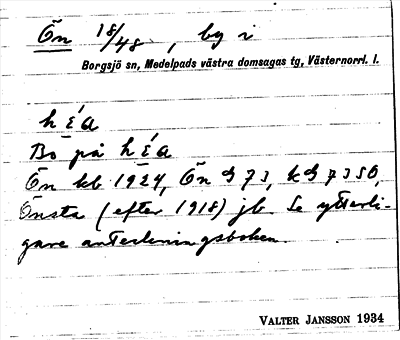 Ön 18/48, by i
Borgsjö sn, Medelpads västra domsagas tg, Västernorrl. l.
h é a
Bo på h é a
Ön kb 1924, Ön G 73, kG 7350,
Önsta (efter 1918) jb. Se ytterli-
gare anteckningsboken.
VALTER JANSSON 1934